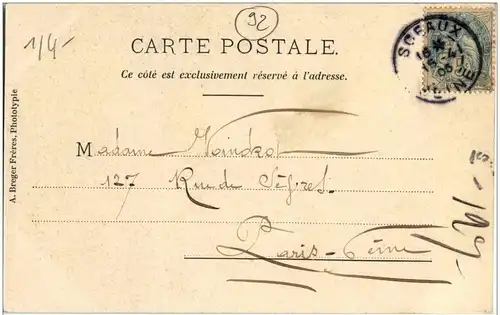 1/4-
92
CARTE POSTALE.
Ce côté est exclusivement réservé à l'adresse.
SCEAUX
SEINE
A. Breger Frères, Phototypie
Madame
127 Rue de Sèvres.
Paris-6ème